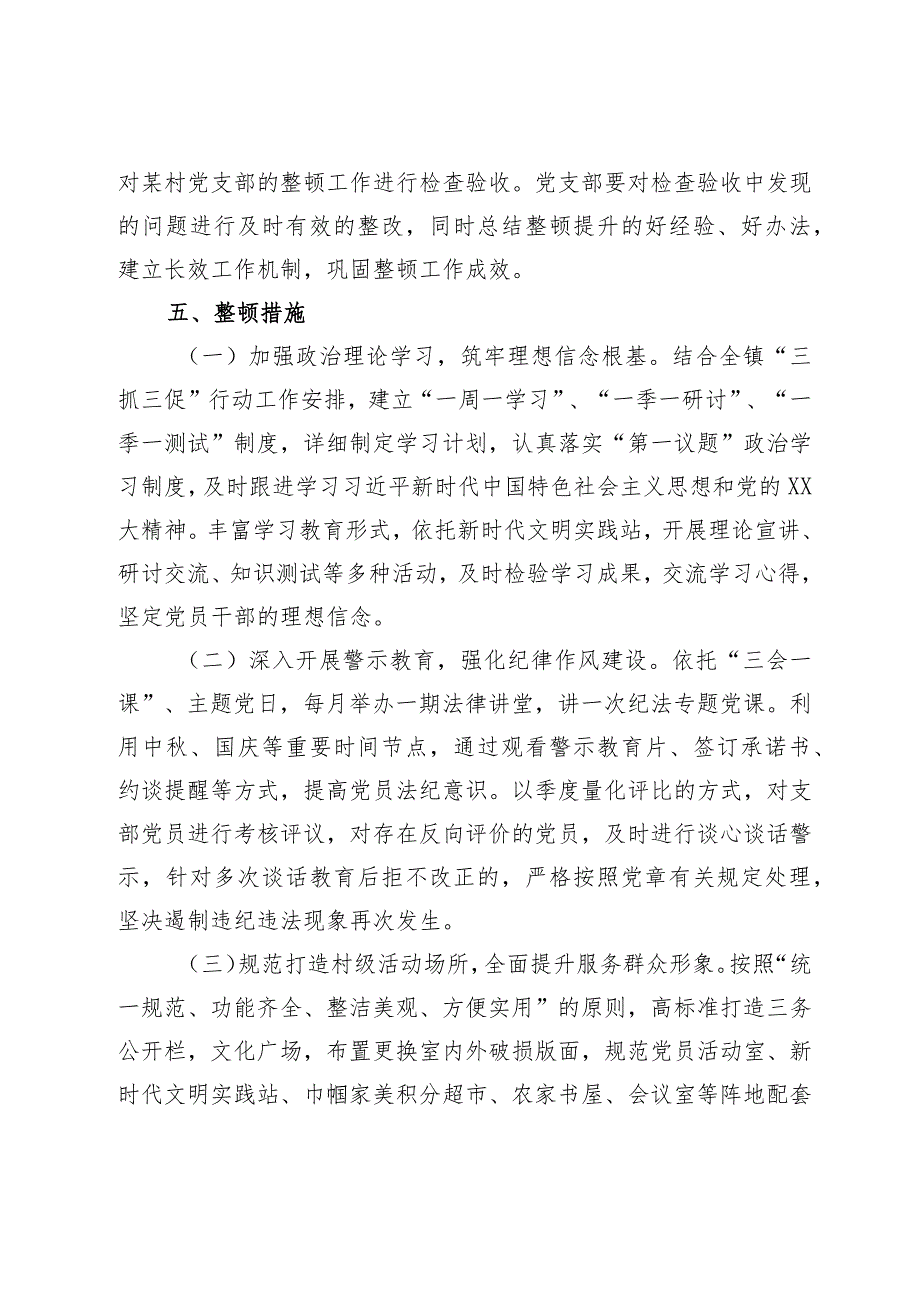 对某村党支部的整顿工作进行检查验收。党支部要对检查验收中发现
的问题进行及时有效的整改，同时总结整顿提升的好经验、好办法，
建立长效工作机制，巩固整顿工作成效。
五、整顿措施
（一）加强政治理论学习，筑牢理想信念根基。结合全镇“三
抓三促”行动工作安排，建立“一周一学习”、“一季一研讨”、“一
季一测试”制度，详细制定学习计划，认真落实“第一议题”政治学
习制度，及时跟进学习习近平新时代中国特色社会主义思想和党的XX
大精神。丰富学习教育形式，依托新时代文明实践站，开展理论宣讲、
研讨交流、知识测试等多种活动，及时检验学习成果，交流学习心得，
坚定党员干部的理想信念。
（二）深入开展警示教育，强化纪律作风建设。依托“三会一
课”、主题党日，每月举办一期法律讲堂，讲一次纪法专题党课。利
用中秋、国庆等重要时间节点，通过观看警示教育片、签订承诺书、
约谈提醒等方式，提高党员法纪意识。以季度量化评比的方式，对支
部党员进行考核评议，对存在反向评价的党员，及时进行谈心谈话警
示，针对多次谈话教育后拒不改正的，严格按照党章有关规定处理，
坚决遏制违纪违法现象再次发生。
（三）规范打造村级活动场所，全面提升服务群众形象。按照“统
一规范、功能齐全、整洁美观、方便实用”的原则，高标准打造三务
公开栏，文化广场，布置更换室内外破损版面，规范党员活动室、新
时代文明实践站、巾帼家美积分超市、农家书屋、会议室等阵地配套